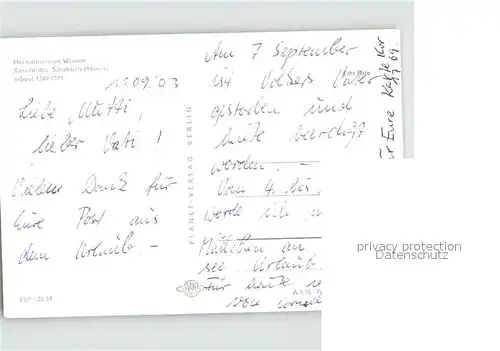 Heimatmuseum Wismar
Ansicht des Schabbelt-Hauses
erbaut 1569-1571
11.09.03
Liebe Mutti,
lieber Vati!
Vielen Dank für
Eure Post aus
dem Urlaub -
PLANET-VERLAG BERLIN
Am 7 September
ist Volkers Vater
gestorben und
heute beerdigt
worden. -
Vom 4. bis
werde ich
Mädchen an
see Urlaub
Für heute
Eure Karte
privacy protection
Datenschutz